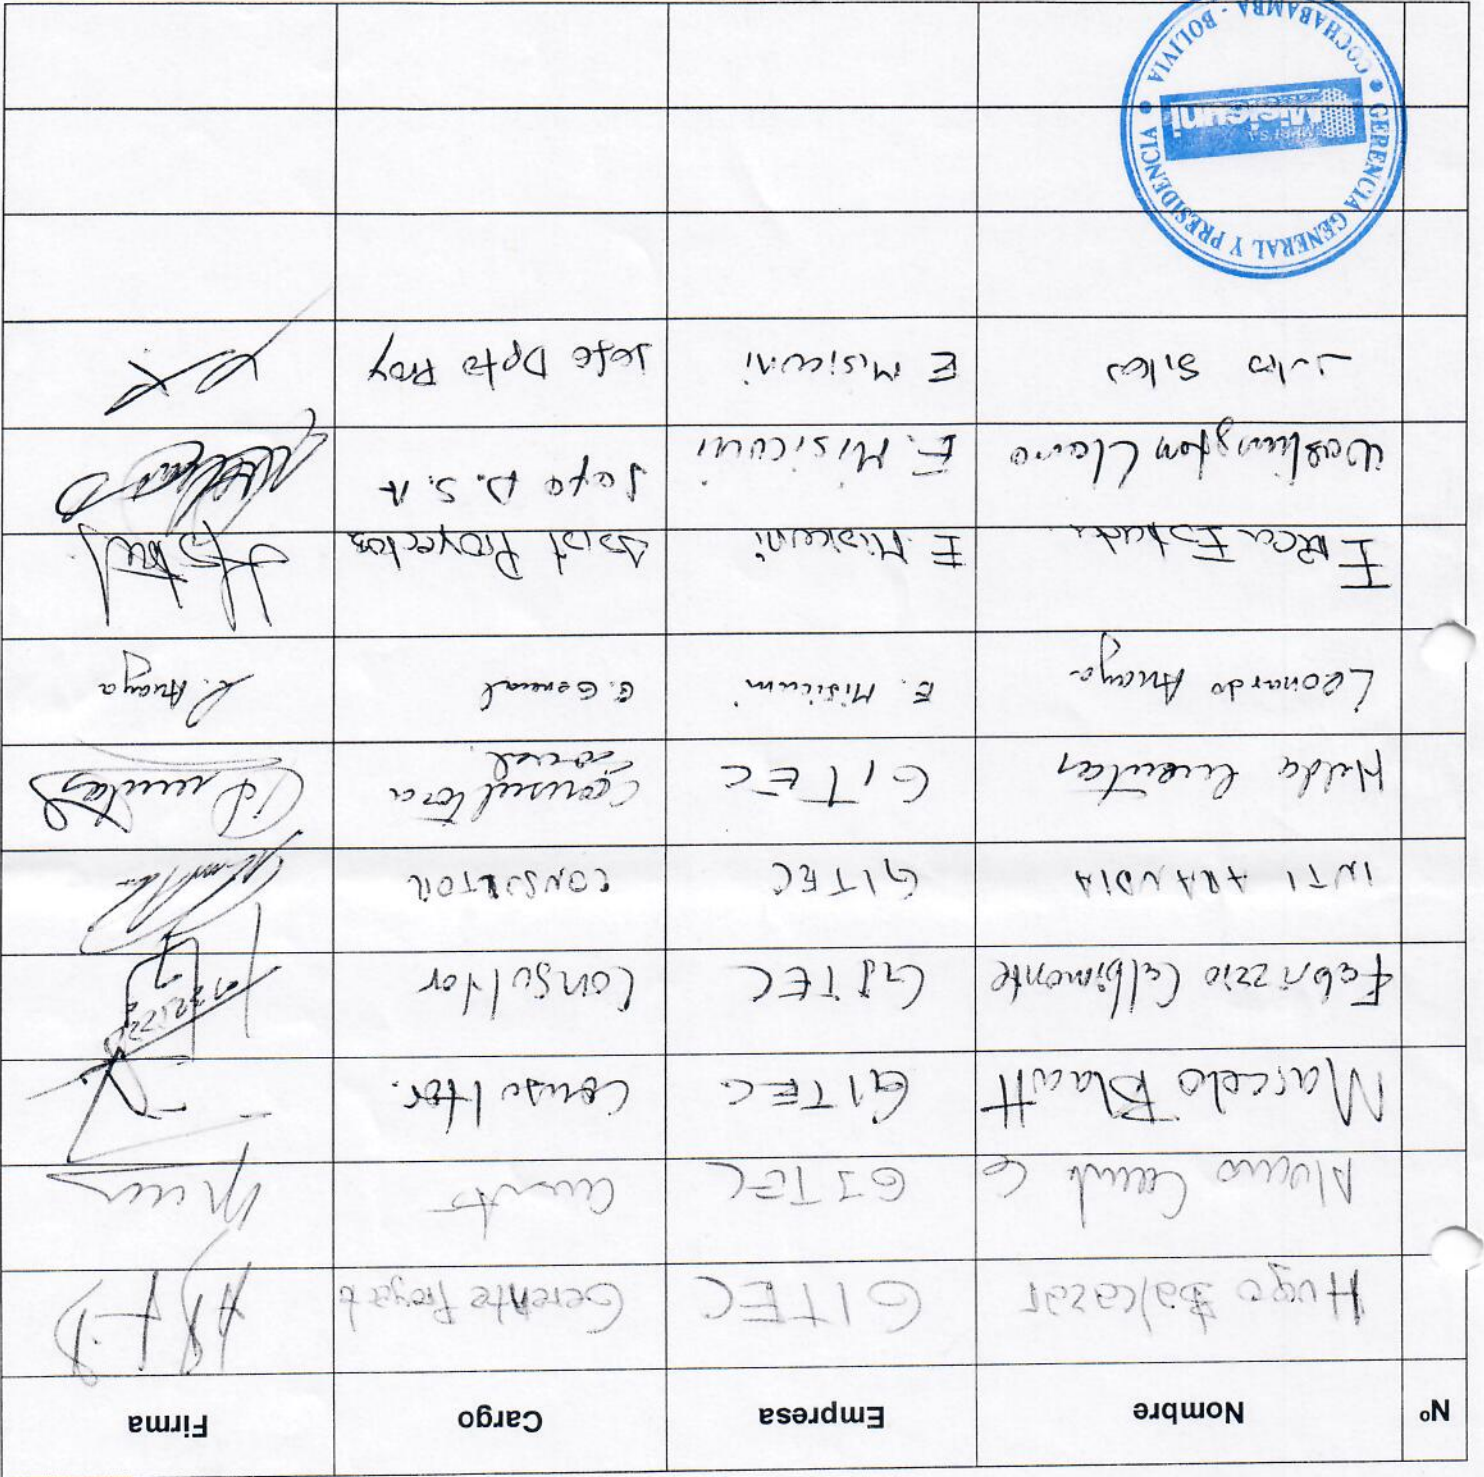 Nº Nombre Empresa Cargo Firma
Hugo Balcazar GITEC Gerente Proyecto
GITEC
Marcelo Blacutt GITEC Consultor.
Fabrizzio Celbimonte GITEC Consultor
INTI ARANDIA GITEC CONSULTOR
Hilda GITEC Consultora
social
Leonardo Anaya E. Misicuni G. General L. Anaya
E. Misicuni Asist Proyectos
Washington Claure E. Misicuni Jefe D.S.A
Julio Siles E Misicuni Jefe Dpto Proy
GERENCIA GENERAL Y PRESIDENCIA
Misicuni
COCHABAMBA - BOLIVIA